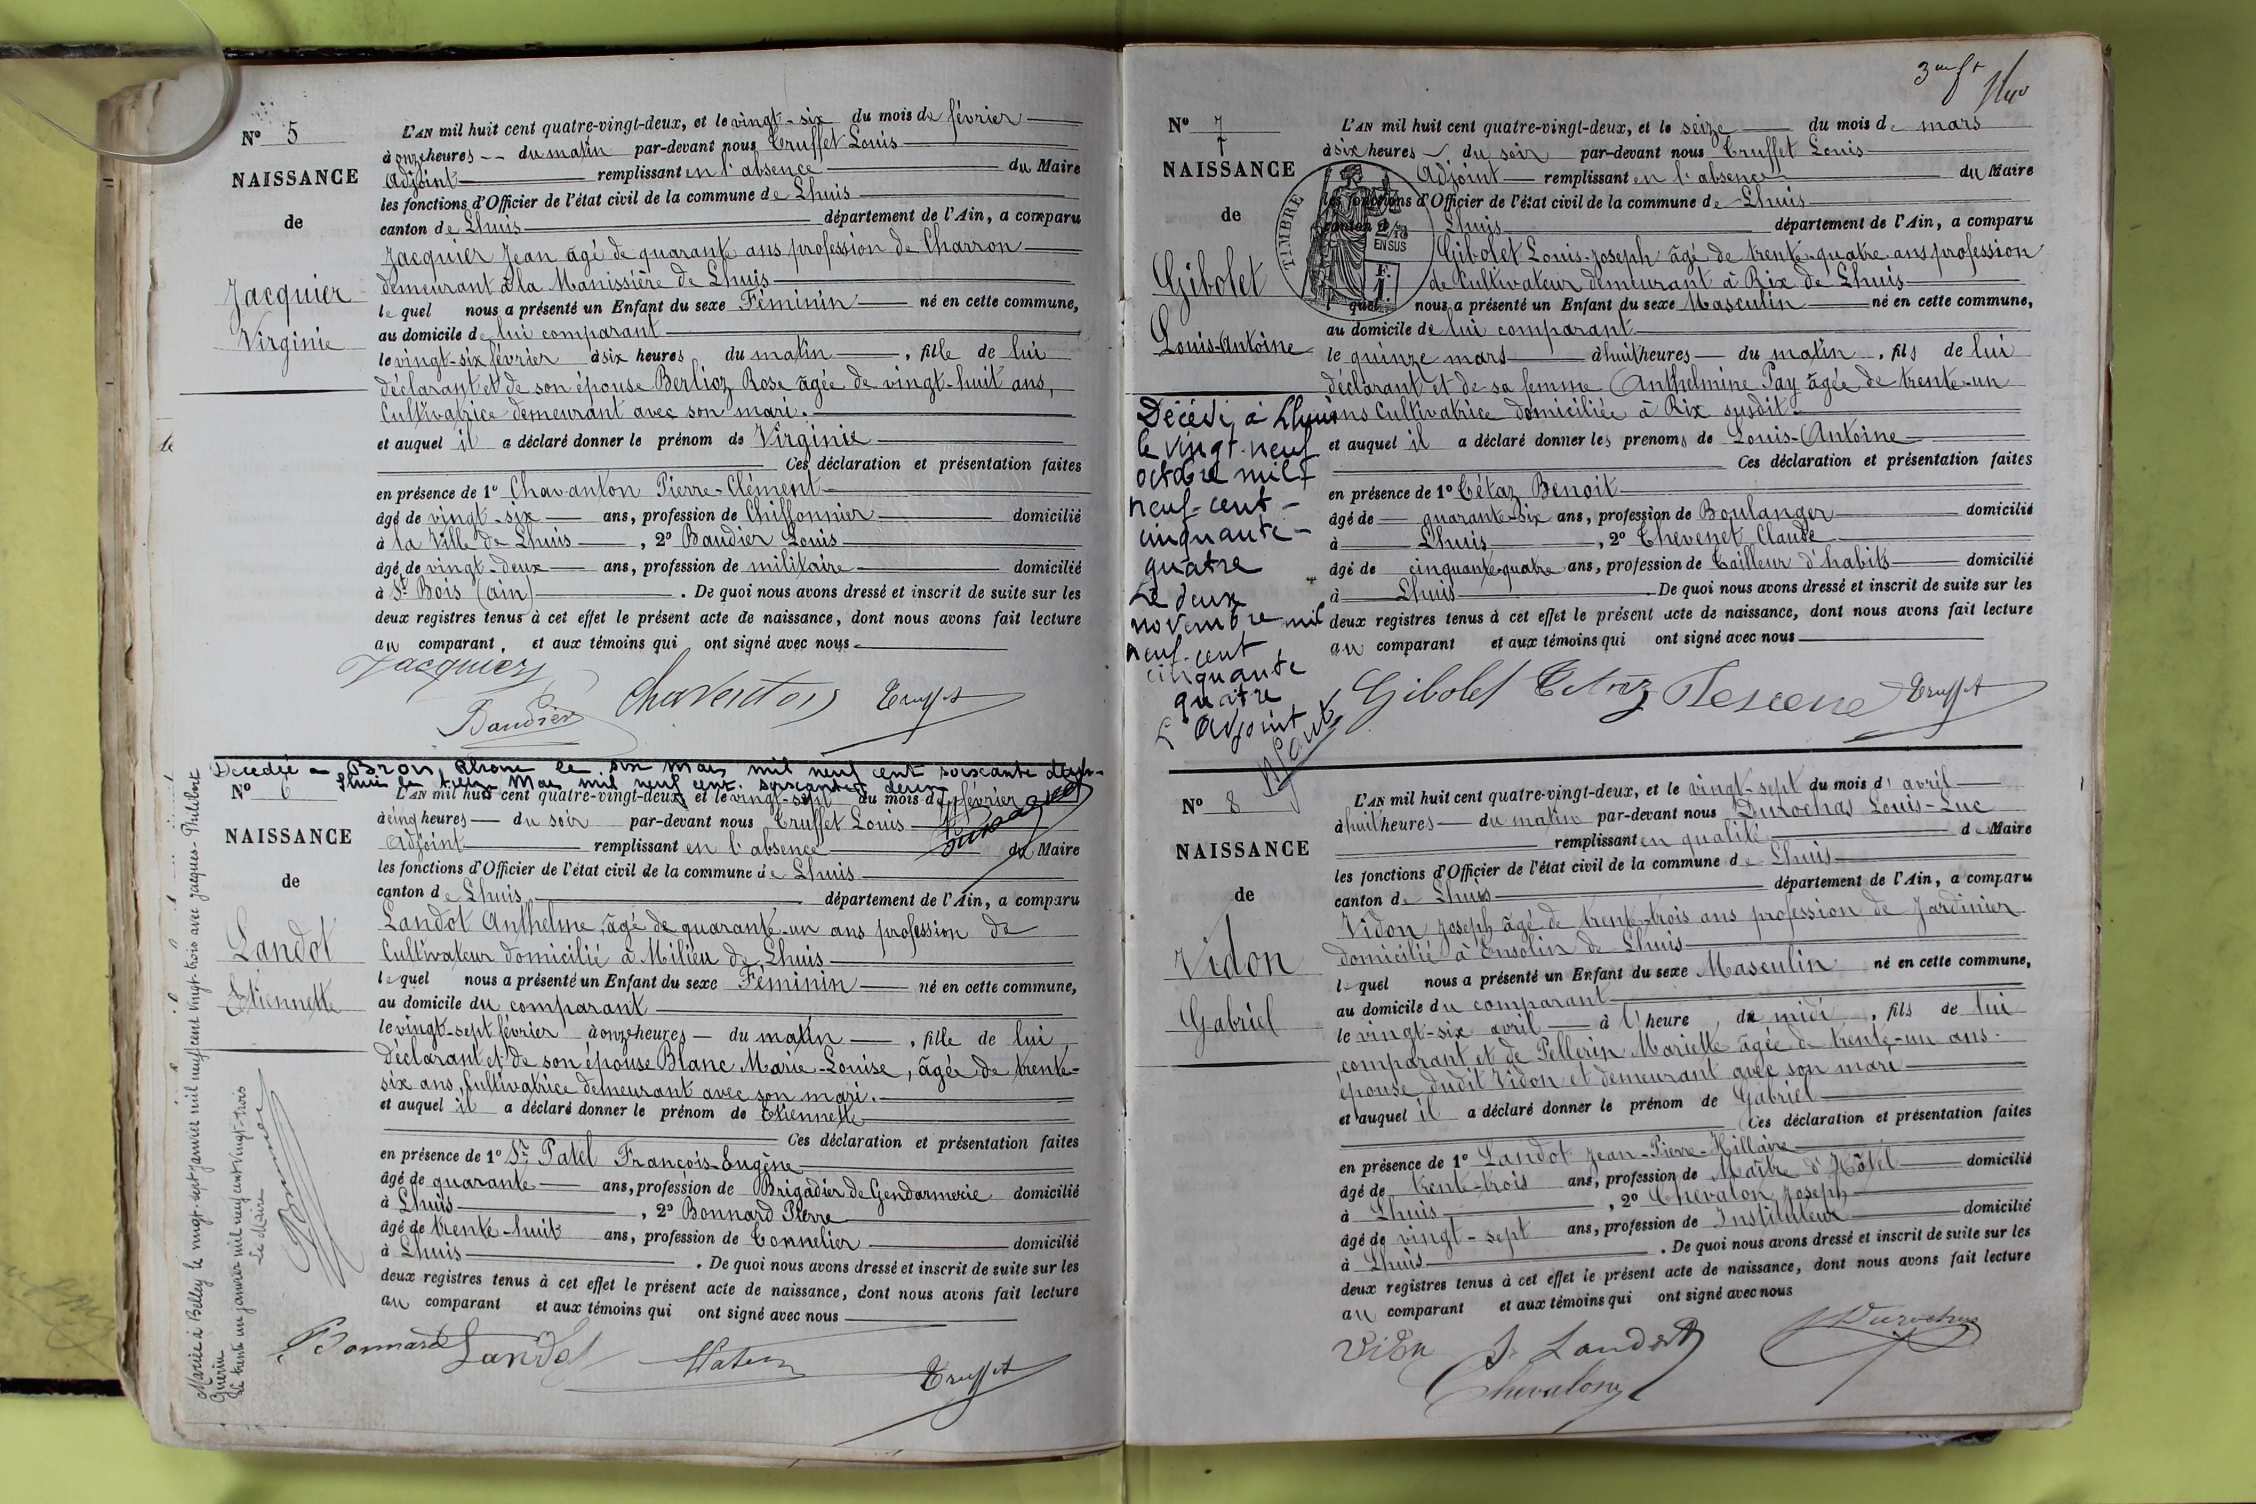 N° 5
NAISSANCE
de
Jacquier
Virginie
L'AN mil huit cent quatre-vingt-deux, et le vingt-six du mois de février
à onze heures du matin par-devant nous Truffet Louis
Adjoint remplissant en l'absence du Maire
les fonctions d'Officier de l'état civil de la commune de Lhuis
canton de Lhuis département de l'Ain, a comparu
Jacquier Jean âgé de quarante ans profession de Charron
demeurant à la Manissière de Lhuis
lequel nous a présenté un Enfant du sexe Féminin né en cette commune,
au domicile de lui comparant
le vingt-six février à six heures du matin, fille de lui
déclarant et de son épouse Berlioz Rose âgée de vingt-huit ans,
Cultivatrice demeurant avec son mari.
et auquel il a déclaré donner le prénom de Virginie
Ces déclaration et présentation faites
en présence de 1° Chavanton Pierre-Clément
âgé de vingt-six ans, profession de Chiffonnier domicilié
à la Ville de Lhuis, 2° Baudier Louis
âgé de vingt-deux ans, profession de militaire domicilié
à St Bois (ain). De quoi nous avons dressé et inscrit de suite sur les
deux registres tenus à cet effet le présent acte de naissance, dont nous avons fait lecture
au comparant, et aux témoins qui ont signé avec nous
Jacquier
Baudier Chaventon Truffet
Decedée a Bron, Rhone le six Mars mil neuf cent soixante deux
Lhuis le Mars mil neuf cent soixante deux
N° 6
NAISSANCE
de
Landot
Etiennette
L'AN mil huit cent quatre-vingt-deux, et le vingt-sept du mois de février
à cinq heures du soir par-devant nous Truffet Louis
Adjoint remplissant en l'absence du Maire
les fonctions d'Officier de l'état civil de la commune de Lhuis
canton de Lhuis département de l'Ain, a comparu
Landot Anthelme, âgé de quarante-un ans profession de
Cultivateur domicilié à Milieu de Lhuis
lequel nous a présenté un Enfant du sexe Féminin né en cette commune,
au domicile du comparant
le vingt-sept février à onze heures du matin, fille de lui
déclarant et de son épouse Blanc Marie-Louise, âgée de trente-
six ans, Cultivatrice demeurant avec son mari.
et auquel il a déclaré donner le prénom de Etiennette
Ces déclaration et présentation faites
en présence de 1° Sr Patel François-Eugène
âgé de quarante ans, profession de Brigadier de Gendarmerie domicilié
à Lhuis, 2° Bonnard Pierre
âgé de trente-huit ans, profession de Tonnelier domicilié
à Lhuis. De quoi nous avons dressé et inscrit de suite sur les
deux registres tenus à cet effet le présent acte de naissance, dont nous avons fait lecture
au comparant et aux témoins qui ont signé avec nous
Bonnard Landot Truffet
Mariée à Belley le vingt-sept janvier mil neuf cent vingt-trois avec Jacques-Philibert
Guérin
Le trente un janvier mil neuf cent vingt-trois
Le Maire
Bonnard
3me ft
N° 7
NAISSANCE
de
Gibolet
Louis-Antoine
TIMBRE
2/10
EN SUS
L'AN mil huit cent quatre-vingt-deux, et le seize du mois de mars
à six heures du soir par-devant nous Truffet Louis
Adjoint remplissant en l'absence du Maire
les fonctions d'Officier de l'état civil de la commune de Lhuis
canton de Lhuis département de l'Ain, a comparu
Gibolet Louis-Joseph âgé de trente-quatre ans profession
de Cultivateur demeurant à Rix de Lhuis
lequel nous a présenté un Enfant du sexe Masculin né en cette commune,
au domicile de lui comparant
le quinze mars à huit heures du matin, fils de lui
déclarant et de sa femme Anthelmine Pay âgée de trente-un
ans Cultivatrice domiciliée à Rix susdit.
et auquel il a déclaré donner les prenoms de Louis-Antoine
Ces déclaration et présentation faites
en présence de 1° Tétaz Benoit
âgé de quarante-six ans, profession de Boulanger domicilié
à Lhuis, 2° Thevenet Claude
âgé de cinquante-quatre ans, profession de Tailleur d'habits domicilié
à Lhuis. De quoi nous avons dressé et inscrit de suite sur les
deux registres tenus à cet effet le présent acte de naissance, dont nous avons fait lecture
au comparant et aux témoins qui ont signé avec nous
Gibolet Tétaz Truffet
Décédé à Lhuis
le vingt-neuf
octobre mil
neuf-cent-
cinquante-
quatre
Le deux
novembre mil
neuf-cent
cinquante
quatre
L'Adjoint
N° 8
NAISSANCE
de
Vidon
Gabriel
L'AN mil huit cent quatre-vingt-deux, et le vingt-sept du mois d'avril
à huit heures du matin par-devant nous Durochas Louis-Luc
remplissant en qualité de Maire
les fonctions d'Officier de l'état civil de la commune de Lhuis
canton de Lhuis département de l'Ain, a comparu
Vidon Joseph âgé de trente-trois ans profession de Jardinier
domicilié à Ensolin de Lhuis
lequel nous a présenté un Enfant du sexe Masculin né en cette commune,
au domicile du comparant
le vingt-six avril à l'heure de midi, fils de lui
comparant et de Pellerin Mariette âgée de trente-un ans
épouse dudit Vidon et demeurant avec son mari
et auquel il a déclaré donner le prénom de Gabriel
Ces déclaration et présentation faites
en présence de 1° Landot Jean-Pierre-Hillaire
âgé de trente-trois ans, profession de Maître d'Hôtel domicilié
à Lhuis, 2° Chevalon Joseph
âgé de vingt-sept ans, profession de Instituteur domicilié
à Lhuis. De quoi nous avons dressé et inscrit de suite sur les
deux registres tenus à cet effet le présent acte de naissance, dont nous avons fait lecture
au comparant et aux témoins qui ont signé avec nous
Vidon Landot Durochas
Chevalon